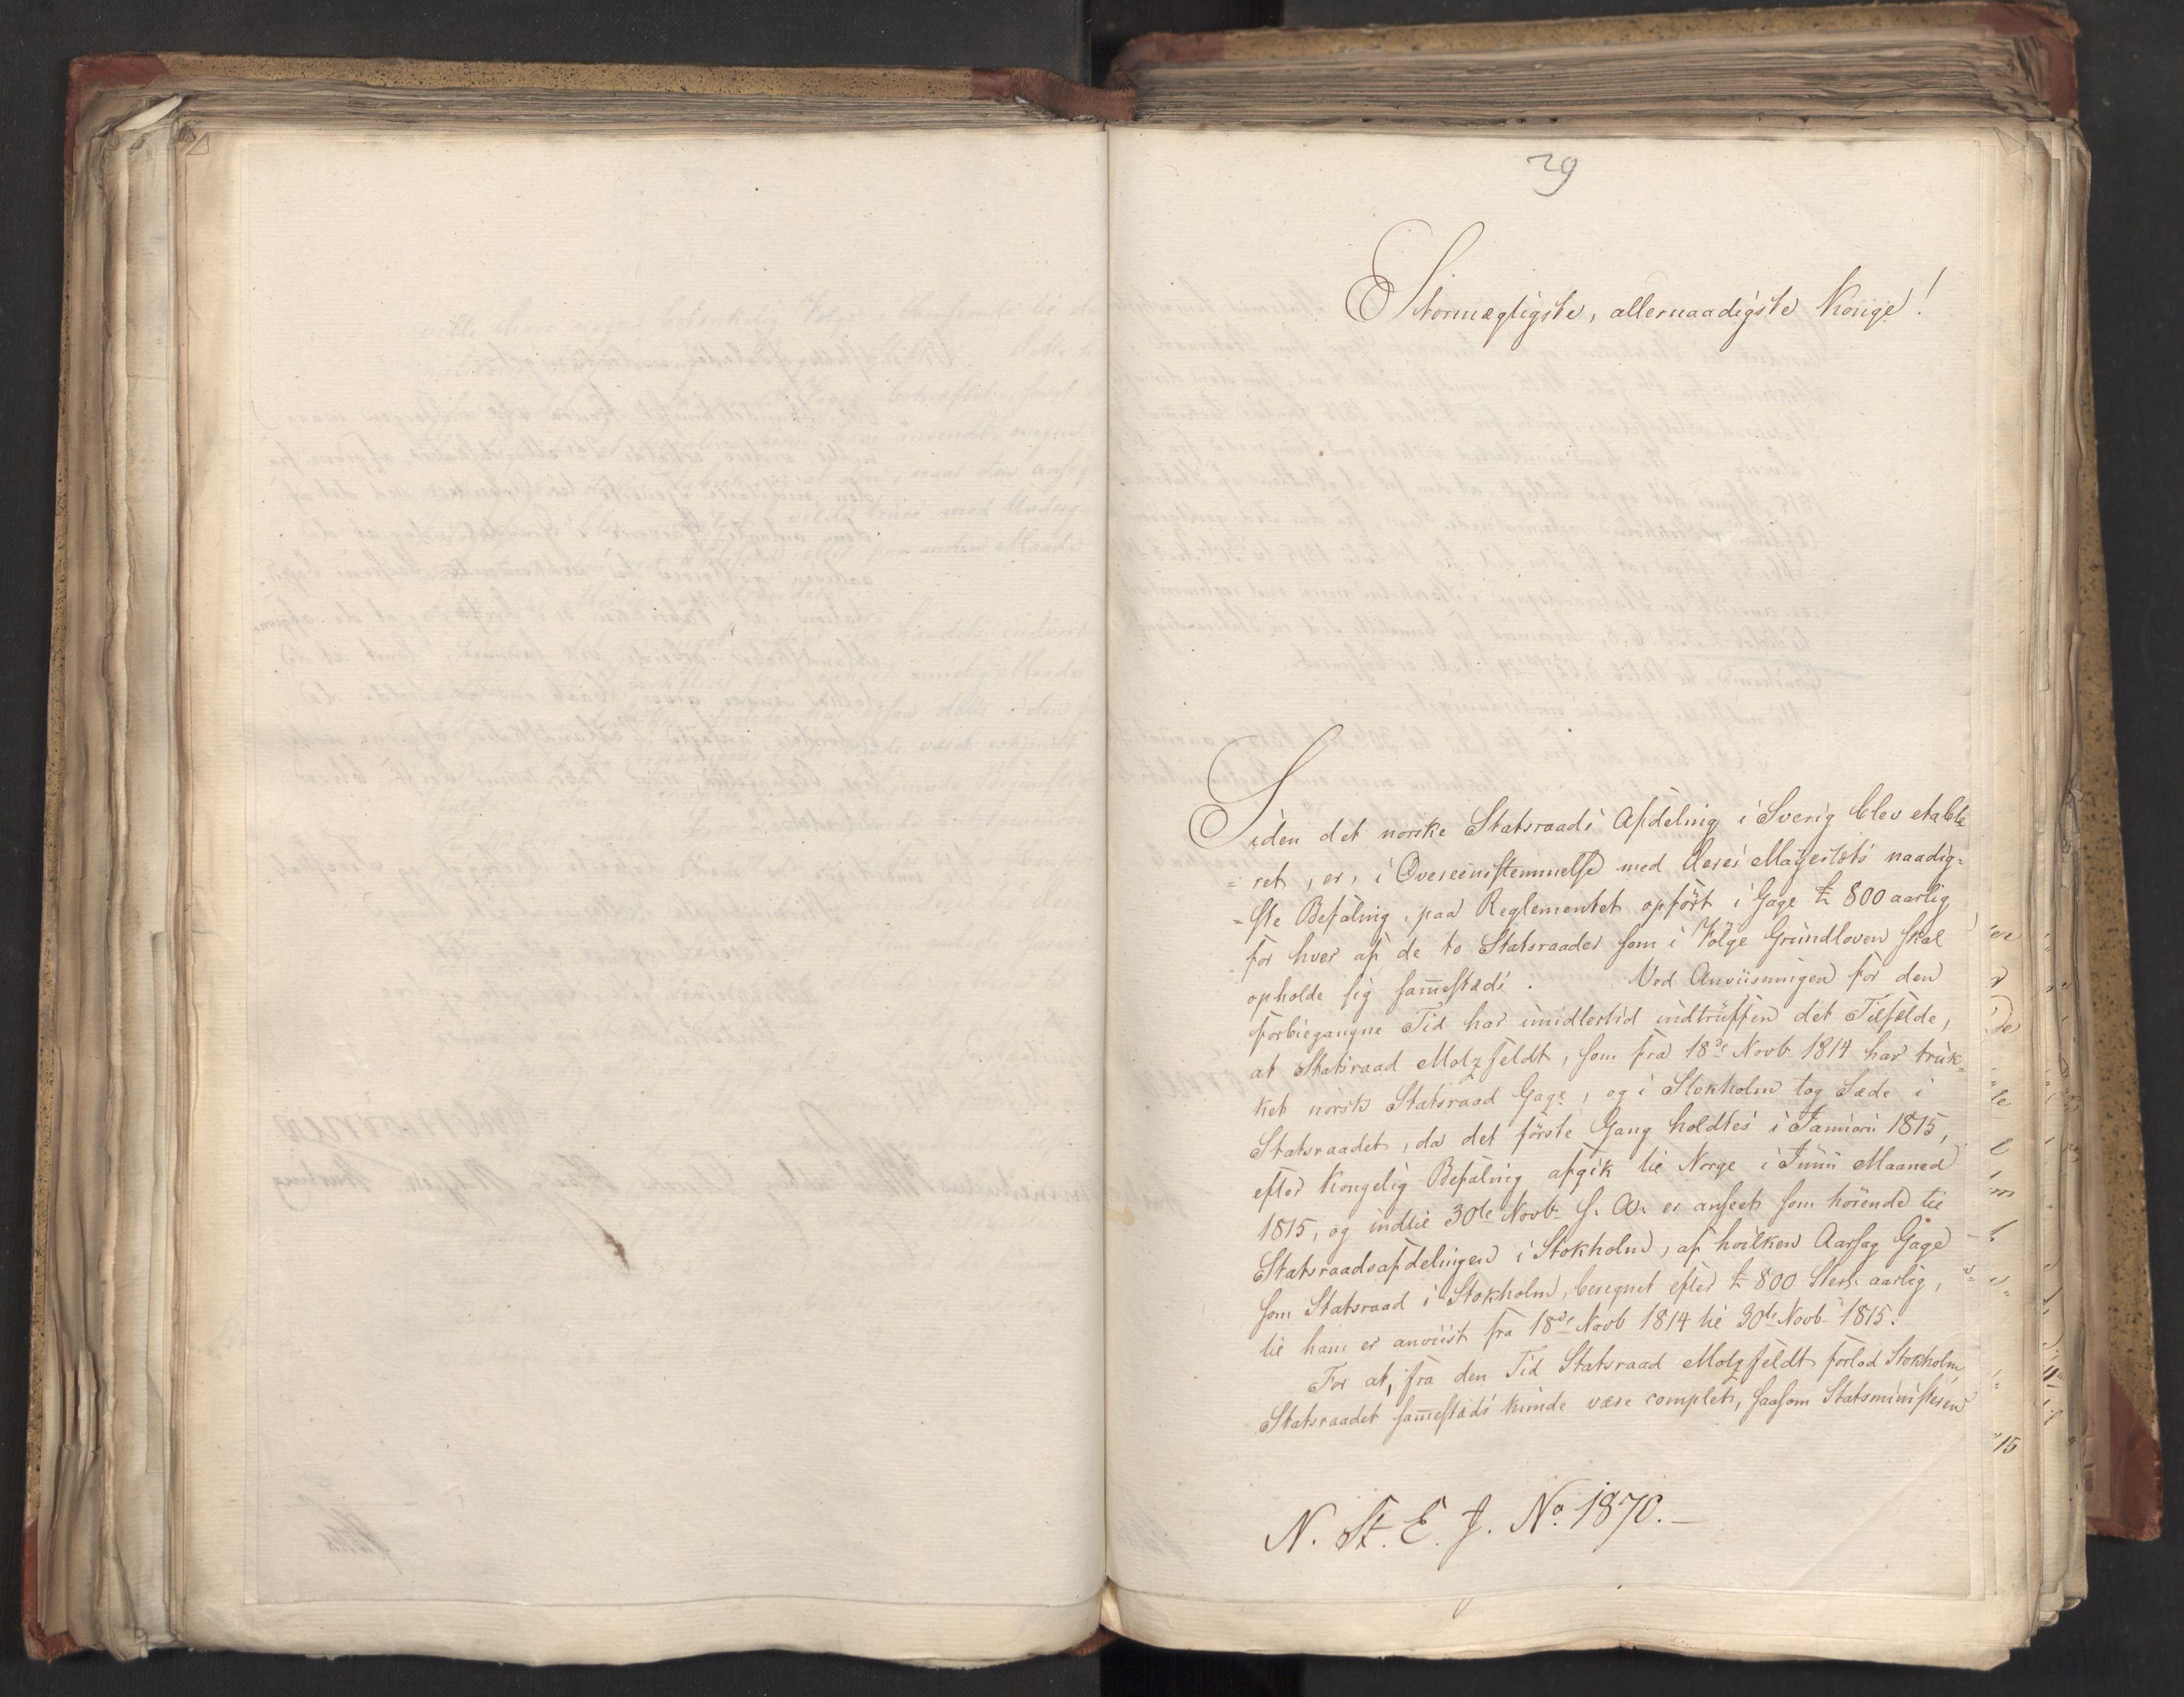 29
Stormægtigste, allernaadigste Konge!
Siden det norske Statsraads Afdeling i Sverig blev etable
= ret, er, i Overeensstemmelse med Deres Majestæts naadig=
= ste Befaling, paa Reglementet opført i Gage £ 800 aarlig
for hver af de to Statsraader som i Følge Grundloven skal
opholde sig sam̄estæds. Ved Anviisningen for den
forbiegangne Tid har imidlertid indtruffen det Tilfælde,
at Statsraad Motzfeldt, som fra 18de Novb 1814 har truk=
ket norsk Statsraad Gage, og i Stokholm tog Sæde i
Statsraadet, da det første Gang holdtes i Januari 1815,
efter Kongelig Befaling afgik til Norge i Junii Maaned
1815, og indtil 30te Novb s. A. er anseet som hørende til
Statsraadsafdelingen i Stokholm, af hvilken Aarsag Gage
som Statsraad i Stokholm, beregnet efter £ 800 Sterl. aarlig,
til ham er anviist fra 18de Novb 1814 til 30te Novb 1815.
For at, fra den Tid Statsraad Motzfeldt forlod Stokholm
Statsraadet sam̄estæds kunde være complet, saasom Statsministeren
N. St. E. J. No. 1870.–